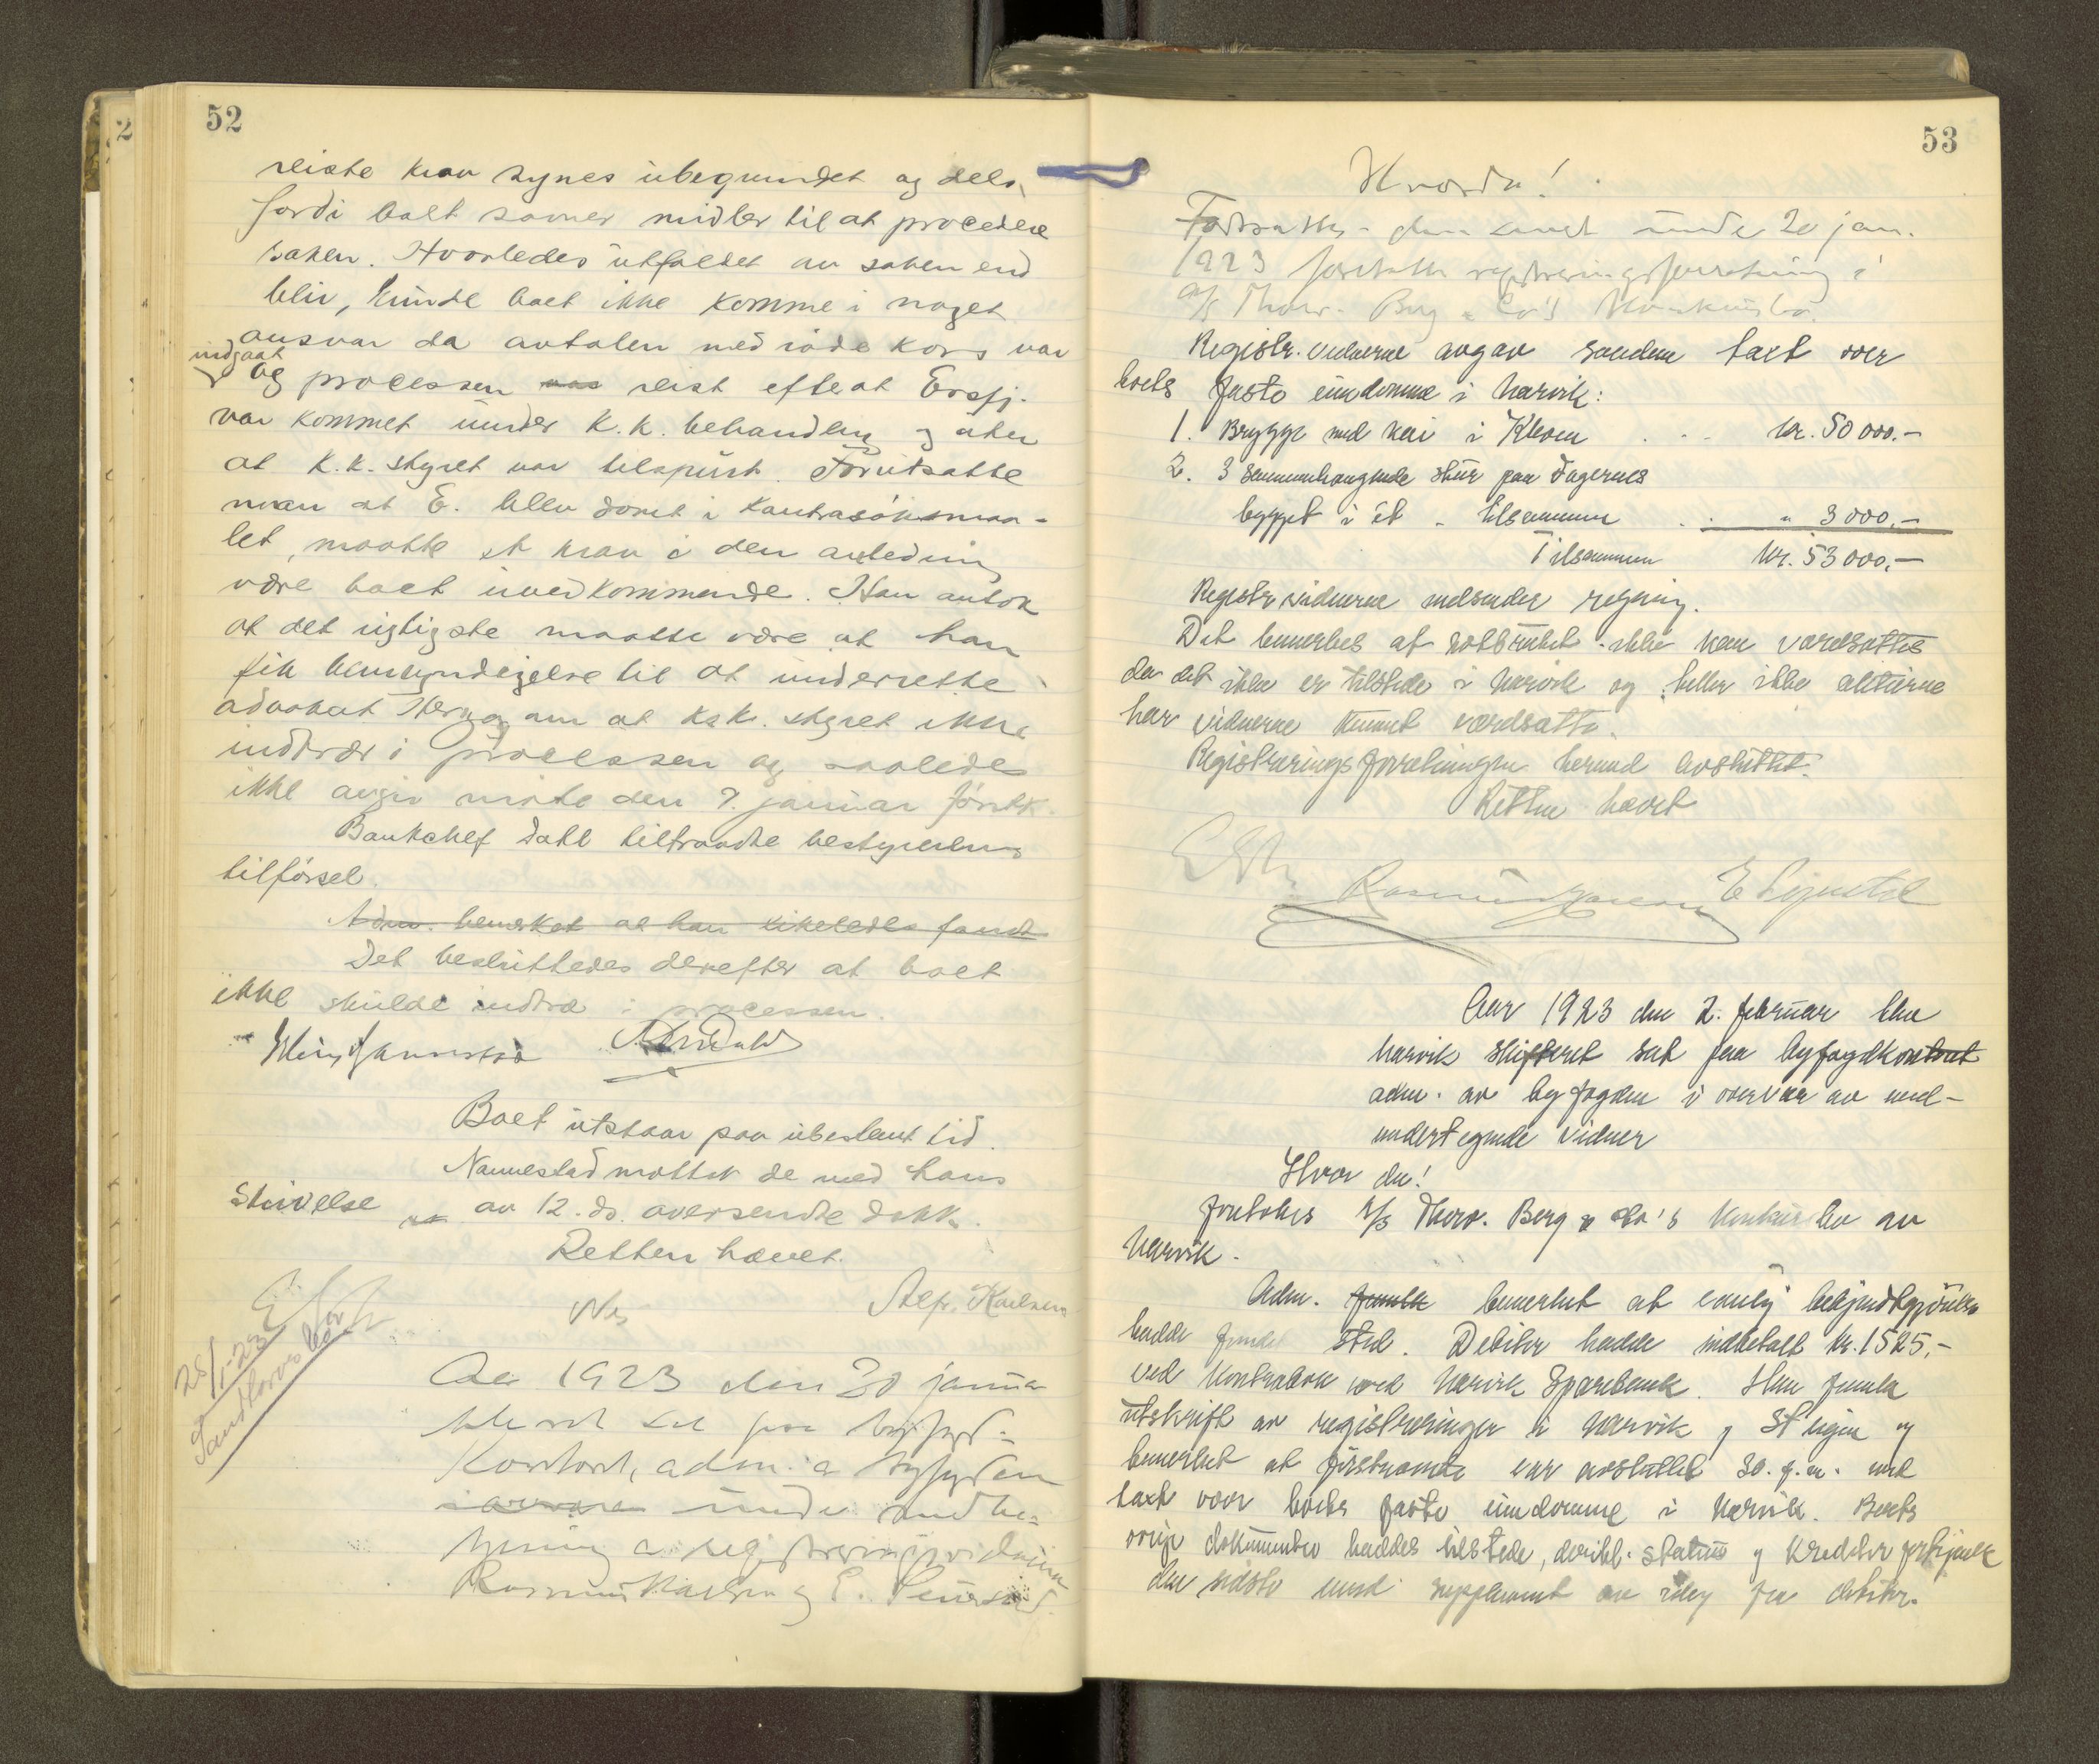 52
reiste krav synes ubegrundet og dels
fordi boet savner midler til at procedere
saken. Hvorledes utfaldet av saken end
blir, kunde boet ikke komme i noget
ansvar da avtalen med röde kors var
indgaat
og processen var reist efterat Ersfj.
var kommet under k.k. behandling og uten
at k.k. styret var tilspurt. Forutsatte
man at E. blev dömt i kontrasöksmaa-
let, maatte et krav i den anledning
være boet uvedkommende. Han antok
at det rigtigste maatte være at han
fik bemyndigelse til at underrette
advokat om at k.k. styret ikke
indtrær i processen og saaledes
ikke avgir möte den 7. januar förstk.
Bankchef Dahl tiltraadte bestyrerens
tilförsel.
Adm. bemerket at han likeledes fandt
Det besluttedes derefter at boet
ikke skulde indtræ i processen.
Boet utstaar paa ubestemt tid.
Nannestad mottok de med hans
skrivelse av 12. ds. oversendte dokk.
Retten hævet.
Alfr. Karlsen
25/1-23
Aar 1923 den 30 januar
blev ret sat paa byfogd-
kontoret, adm. a byfogden
under medbe-
tjening a registreringsvidnerne
Rasmus Karlsen og E.
53
Hvorda!
Fortsattes den under 20 jan.
1923 foretatte registreringsforretning i
a/s Thorv. Berg & Co's konkursbo.
Registr. vidnerne avgav saadan taxt over
boets faste eiendomme i Narvik:
1. Brygge med kai i Kleven . . . kr. 50 000.-
2. 3 sammenhængende skur paa Fagernes
bygget i ét - tilsammen . . " 3 000,-
Tilsammen kr. 53 000,-
Registr vidnerne indsender regning.
Det bemerkes at ikke kan værdsættes
da det ikke er tilstede i Narvik og heller ikke aktierne
har vidnerne kunnet værdsætte.
Registreringsforretningen hermed avsluttet.
Retten hævet
Aar 1923 den 2. februar blev
Narvik skifteret sat paa byfogdkontoret
adm. av byfogden i overvær av med-
undertegnede vidner
Hvor da!
foretokes A/S Thorv. Berg & Co's konkursbo av
Narvik.
Adm. fremla bemerket at vanlig bekjendtgjörelse
hadde fundet sted. Debitor hadde indbetalt kr. 1525,-
ved kontrabok med Narvik Sparebank. Han fremla
utskrift av registreringer i Narvik og Steigen og
bemerket at förstnævnte var avsluttet 30. f.m. med
taxt over boets faste eiendomme i Narvik. Boets
övrige dokumenter haddes tilstede, deribl. status og kreditorfortegnelse
den sidste med supplement av idag fra debitor.